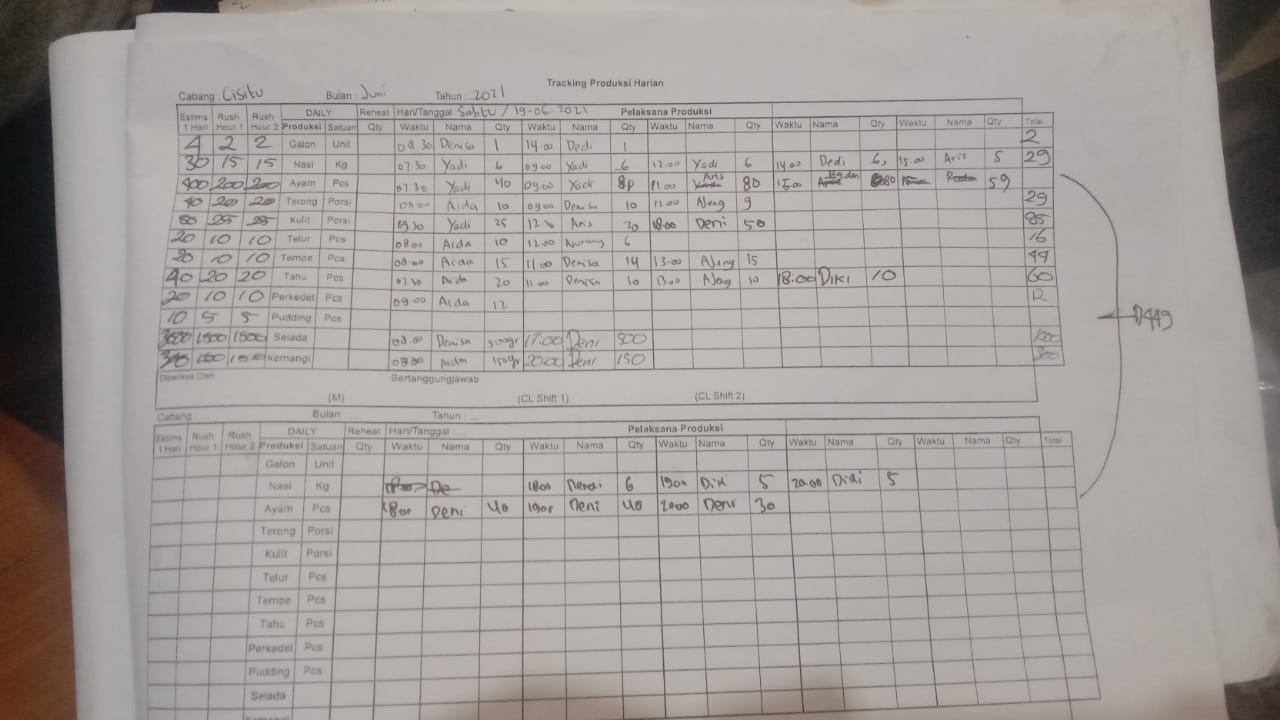 Tracking Produksi Harian
Cabang : Cisitu Bulan : Juni Tahun : 2021
Estima 1 Hari Rush Hour 1 Rush Hour 2 DAILY Reheat Hari/Tanggal : Sabtu / 19-06-2021 Pelaksana Produksi
Produksi Satuan Qty Waktu Nama Qty Waktu Nama Qty Waktu Nama Qty Waktu Nama Qty Waktu Nama Qty Total
4 2 2 Galon Unit 08 30 Denisa 1 14.00 Dedi 1 2
30 15 15 Nasi Kg 07.30 Yadi 6 09.00 Yadi 6 12.00 Yadi 6 14.00 Dedi 6 15.00 Aris 5 29
400 200 200 Ayam Pcs 07.30 Yadi 40 09.00 Yadi 80 11.00 Aris 80 15.00 80 59
40 20 20 Terong Porsi 08.00 Aida 10 09.00 Denisa 10 9 29
Kulit Porsi 09.30 Yadi 25 Aris 20 18.00 Deni 50
20 10 10 Telur Pcs 08.00 Aida 10 12.00 6 16
20 10 10 Tempe Pcs 08.00 Aida 15 11.00 Denisa 14 13.00 15 44
40 20 20 Tahu Pcs 07.30 Aida 20 11.00 Denisa 10 13.00 10 18.00 Diki 10 60
20 10 10 Perkedel Pcs 09.00 Aida 12 12
10 5 5 Pudding Pcs
1500 1500 Selada 08.00 Denisa 500gr 17.00 Deni 500 1000
Kemangi 08.00 Aida 150gr 20.00 Deni 150 300
Diperiksa Oleh Bertanggungjawab
(M) (CL Shift 1) (CL Shift 2)
449
Cabang : ... Bulan : ... Tahun : ...
Estima 1 Hari Rush Hour 1 Rush Hour 2 DAILY Reheat Hari/Tanggal : Pelaksana Produksi
Produksi Satuan Qty Waktu Nama Qty Waktu Nama Qty Waktu Nama Qty Waktu Nama Qty Waktu Nama Qty Total
Galon Unit
Nasi Kg 1800 6 1900 Diki 5 20.00 Diki 5
Ayam Pcs 1800 Deni 40 1900 Deni 40 2000 Deni 30
Terong Porsi
Kulit Porsi
Telur Pcs
Tempe Pcs
Tahu Pcs
Perkedel Pcs
Pudding Pcs
Selada